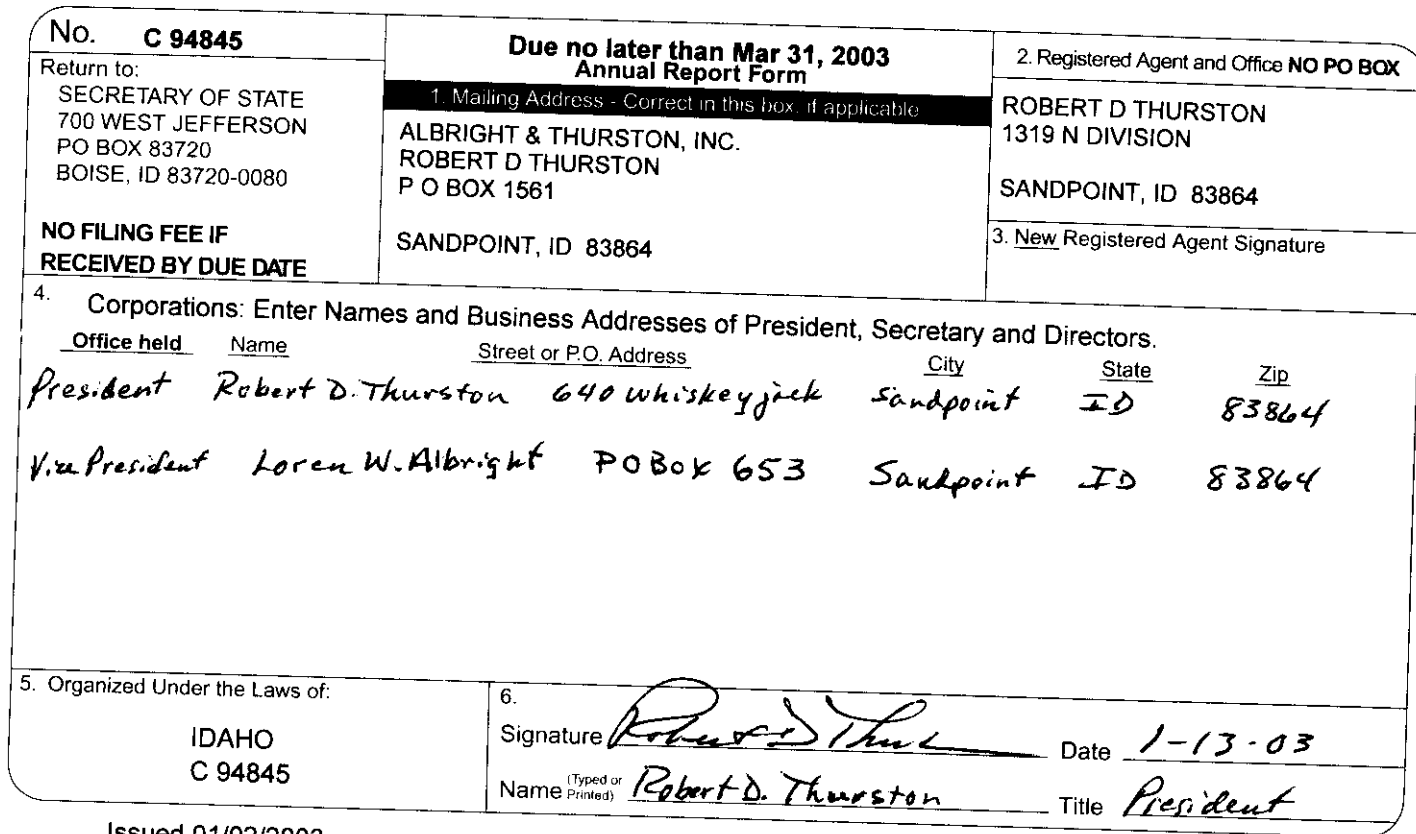 No. C 94845
Return to:
SECRETARY OF STATE
700 WEST JEFFERSON
PO BOX 83720
BOISE, ID 83720-0080
NO FILING FEE IF
RECEIVED BY DUE DATE
Due no later than Mar 31, 2003
Annual Report Form
1. Mailing Address - Correct in this box, if applicable
ALBRIGHT & THURSTON, INC.
ROBERT D THURSTON
P O BOX 1561
SANDPOINT, ID 83864
2. Registered Agent and Office NO PO BOX
ROBERT D THURSTON
1319 N DIVISION
SANDPOINT, ID 83864
3. New Registered Agent Signature
4. Corporations: Enter Names and Business Addresses of President, Secretary and Directors.
Office held Name Street or P.O. Address City State Zip
President Robert D. Thurston 640 whiskeyjack Sandpoint ID 83864
Vice President Loren W. Albright PO Box 653 Sandpoint ID 83864
5. Organized Under the Laws of:
IDAHO
C 94845
6.
Signature Robert D Thurston Date 1-13-03
Name (Typed or Printed) Robert D. Thurston Title President
Issued 01/02/2003